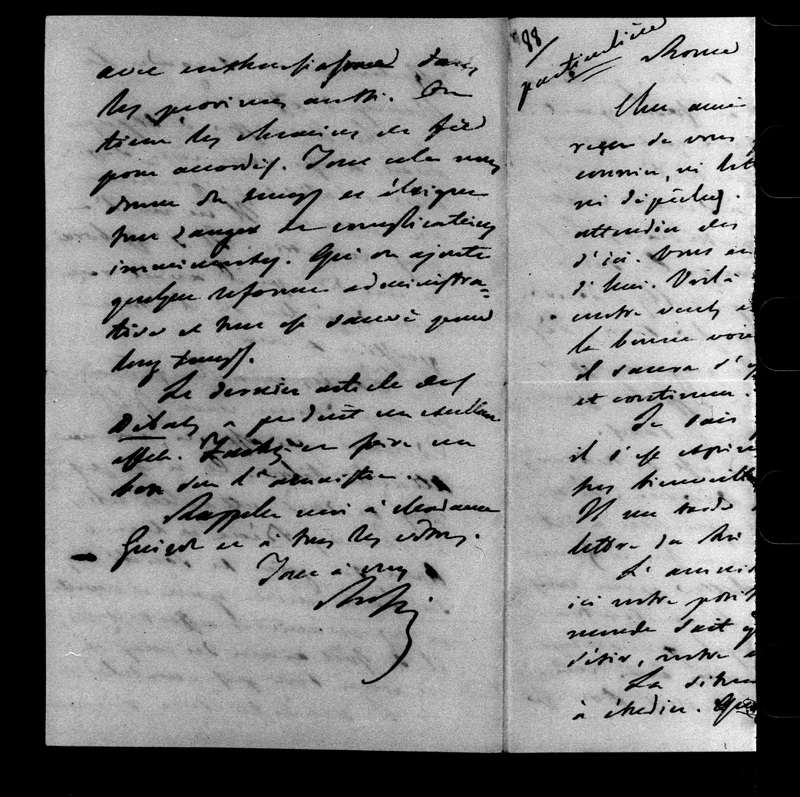 avec enthousiasme dans
les provinces aussi. On
tient les chemins de fer
pour accordés. Tout cela nous
donne du temps et éloigne
tout danger de complications
imminentes. Qu'on ajoute
quelque réforme administra-
tive et tout est sauvé pour
long temps.
Le dernier article des
Débats a produit un excellent
effet. Faites en faire un
bon sur l'amnistie.
Rappelez moi à Madame
Guizot et à tous les vôtres.
Tout à vous
Rossi
88
particulière
Rome
Cher ami
reçu de vous
courrier, ni lett
ni dépêches.
attendu des
d'ici. Vous
d'hui. Voilà
notre
la bonne voie
il saura s'y
et continuer.
Je sais
il s'est exprimé
très bienveill
Il me tarde
lettre du Roi
L'amnis
ici notre posit
monde sait q
désir, notre
La situa
à étudier.